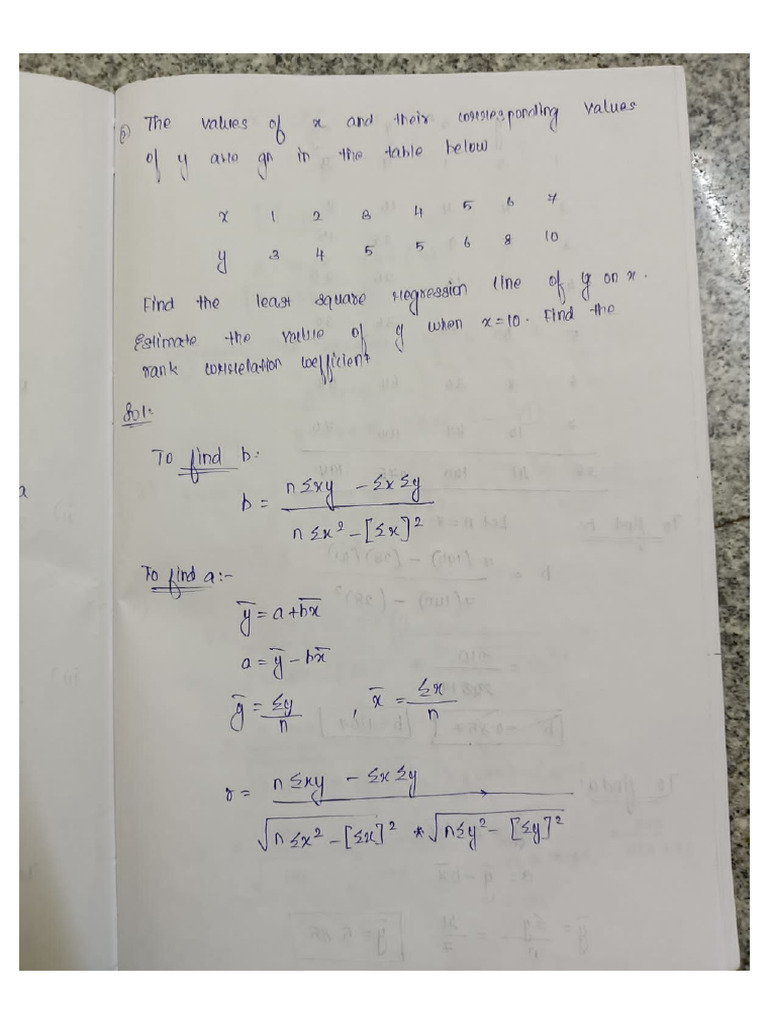 5) The values of x and their corresponding values
of y are gn in the table below
x 1 2 3 4 5 6 7
y 3 4 5 5 6 8 10
Find the least square regression line of y on x.
Estimate the value of y when x=10. Find the
rank correlation coefficient
Sol:
To find b:
b = nΣxy - ΣxΣy / nΣx² - [Σx]²
To find a:-
ȳ = a + bx̄
a = ȳ - bx̄
ȳ = Σy/n , x̄ = Σx/n
r = nΣxy - ΣxΣy / √nΣx² - [Σx]² * √nΣy² - [Σy]²